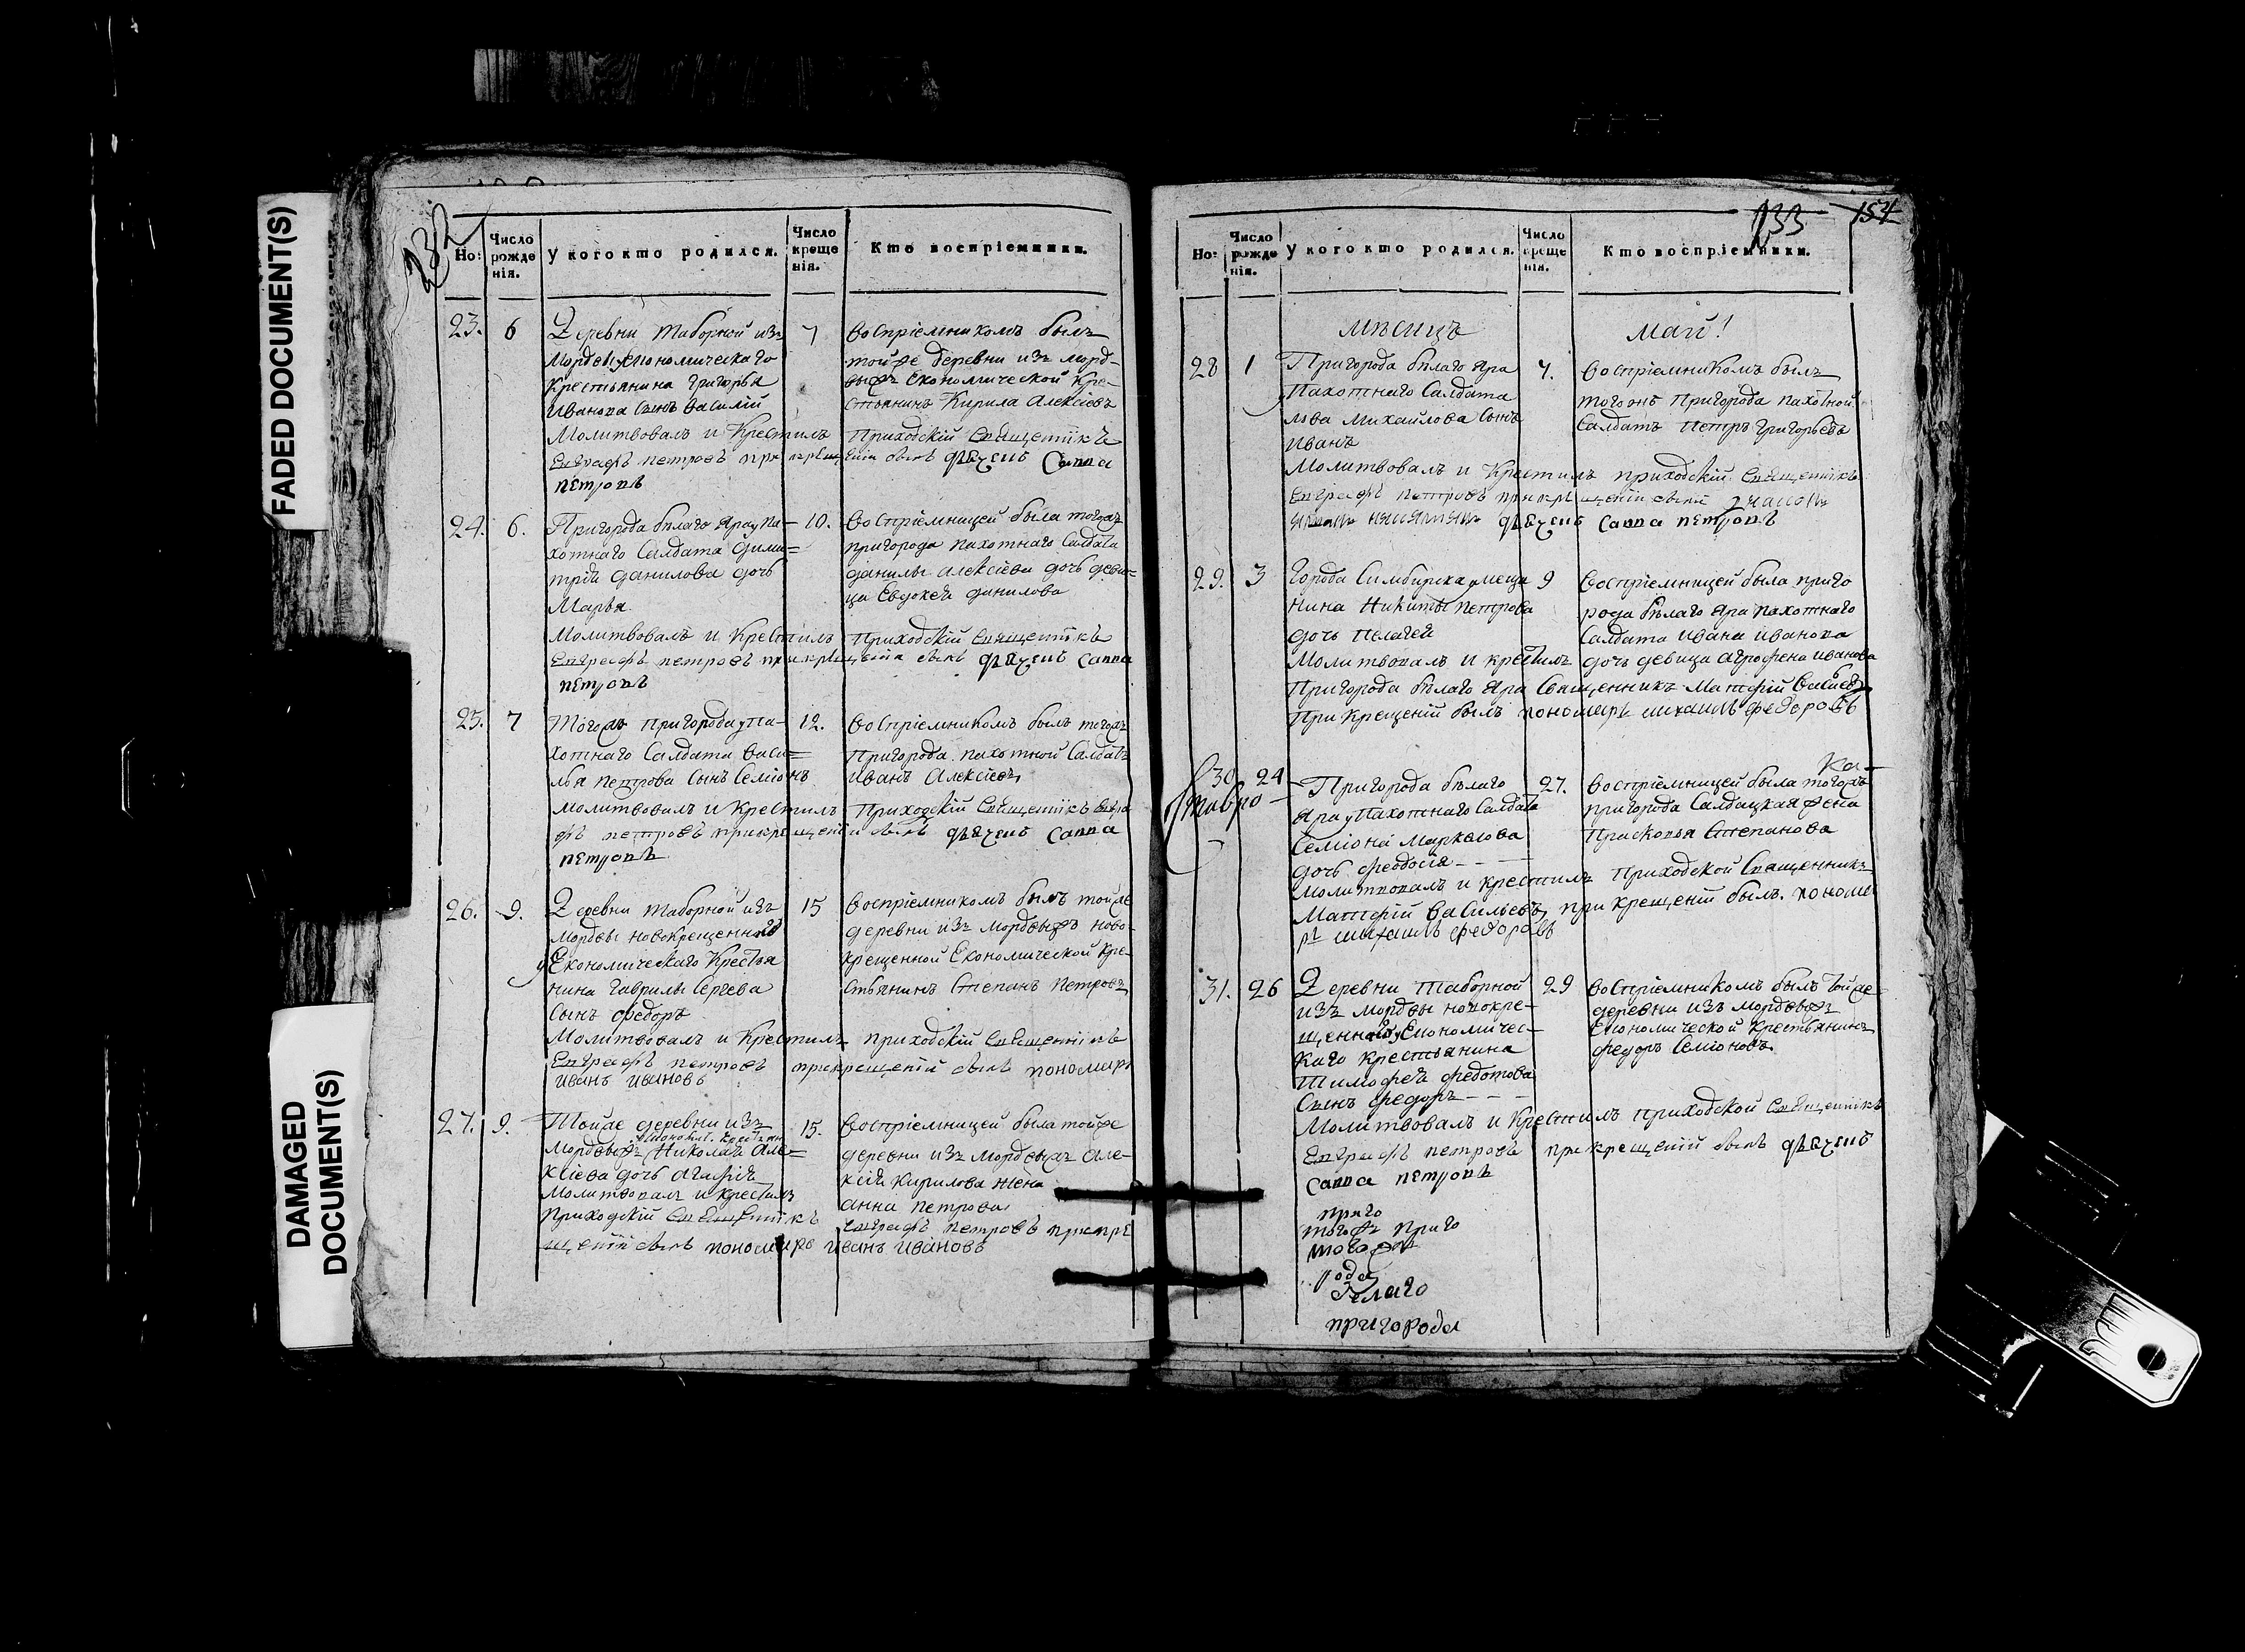 FADED DOCUMENT(S)
DAMAGED
DOCUMENT(S)
232
Но:
Число рожденія.
У кого кто родился.
Число крещенія.
Кто воспріемники.
23. 6 Деревни Таборной изъ 7 воспріемникомъ былъ
Мордвы Економическаго тойже деревни изъ морд-
Крестьянина Григорья выхъ Економической Кре-
Иванова сынъ василій стьянинъ Кирила Алексіевъ
Молитвовалъ и Крестилъ Приходскій Священникъ
Евграфъ петровъ при крещеніи былъ дьячекъ Савва
петровъ
24. 6. Пригорода бѣлаго Яра у па- 10. воспріемницей была тогожъ
хотнаго Салдата Дими= пригорода пахотнаго Салдата
трія данилова дочь данилы алексіева дочь деви=
Марья ца Евдокея данилова
Молитвовалъ и Крестилъ Приходскій Священникъ
Евграфъ петровъ при крещеніи былъ дьячекъ Савва
петровъ
25. 7 Тогожъ пригорода у па- 12. воспріемникомъ былъ тогожъ
хотнаго Салдата васи= Пригорода пахотной Салдатъ
лья петрова сынъ Семіонъ Иванъ Алексіевъ
молитвовалъ и Крестилъ Приходскій Священникъ Евгра
фъ петровъ при крещеніи былъ дьячекъ Савва
петровъ
26. 9. Деревни таборной изъ 15 воспріемникомъ былъ тойже
мордвы новокрещеннаго деревни изъ мордвыхъ ново-
у Економическаго Крестья крещенной Економической Кре-
нина Гаврилы Сергева стьянинъ Степанъ Петровъ
сынъ федоръ
Молитвовалъ и Крестилъ приходскій Священникъ
Евграфъ петровъ при крещеній былъ пономарь
иванъ ивановъ
27. 9. Тойже деревни изъ 15. воспріемницей была тойже
Мордвыхъ Николая Але= деревни изъ мордвыхъ але-
ксіева дочь агафія ксія Кирилова жена
Молитвовалъ и крестилъ анна петрова
Приходскій Священникъ Евграфъ петровъ при кре
щеніи былъ пономарь иванъ ивановъ
133 154
Но:
Число рожденія.
У кого кто родился.
Число крещенія.
Кто воспріемники.
мѣсяцъ май!
28 1 Пригорода бѣлаго Яра 7. воспріемникомъ былъ
у Пахотнаго Салдата тогожъ Пригорода пахотной
льва Михайлова сынъ Салдатъ петръ григорьевъ
Иванъ
Молитвовалъ и Крестилъ приходскій Священникъ
Евграфъ петровъ при крещеніи былъ
дьячекъ Савва петровъ
29. 3 Города Симбирска у меща 9 воспріемницей была приго
нина Никиты петрова рода бѣлаго Яра пахотнаго
дочь пелагея Салдата ивана иванова
Молитвовалъ и крестилъ дочь девица агрофена иванова
Пригорода бѣлаго Яра Священникъ Матфій васильевъ
При Крещеній былъ пономарь михаилъ федоровъ
30. 24 Пригорода бѣлаго 27. воспріемницей была тогожъ
Яра у Пахотнаго Салдата пригорода Салдацкая жена
Семіона Маркелова Прасковья Степанова
дочь феодосія - - -
Молитвовалъ и крестилъ Приходской Священникъ
Матфій васильевъ при крещеній былъ. пономa
рь михаилъ федоровъ
31. 26 Деревни Таборной 29 воспріемникомъ былъ тойже
изъ мордвы новокре- деревни изъ мордвыхъ
щеннаго у Економичес- Економической Крестьянинъ
каго крестьянина федоръ Семіоновъ
Тимофея федотова
сынъ федоръ - - -
Молитвовалъ и Крестилъ приходской Священникъ
Евграфъ петровъ при крещеній былъ дьячекъ
Савва петровъ
приго
тогожъ Приго
рода
белаго
пригорода